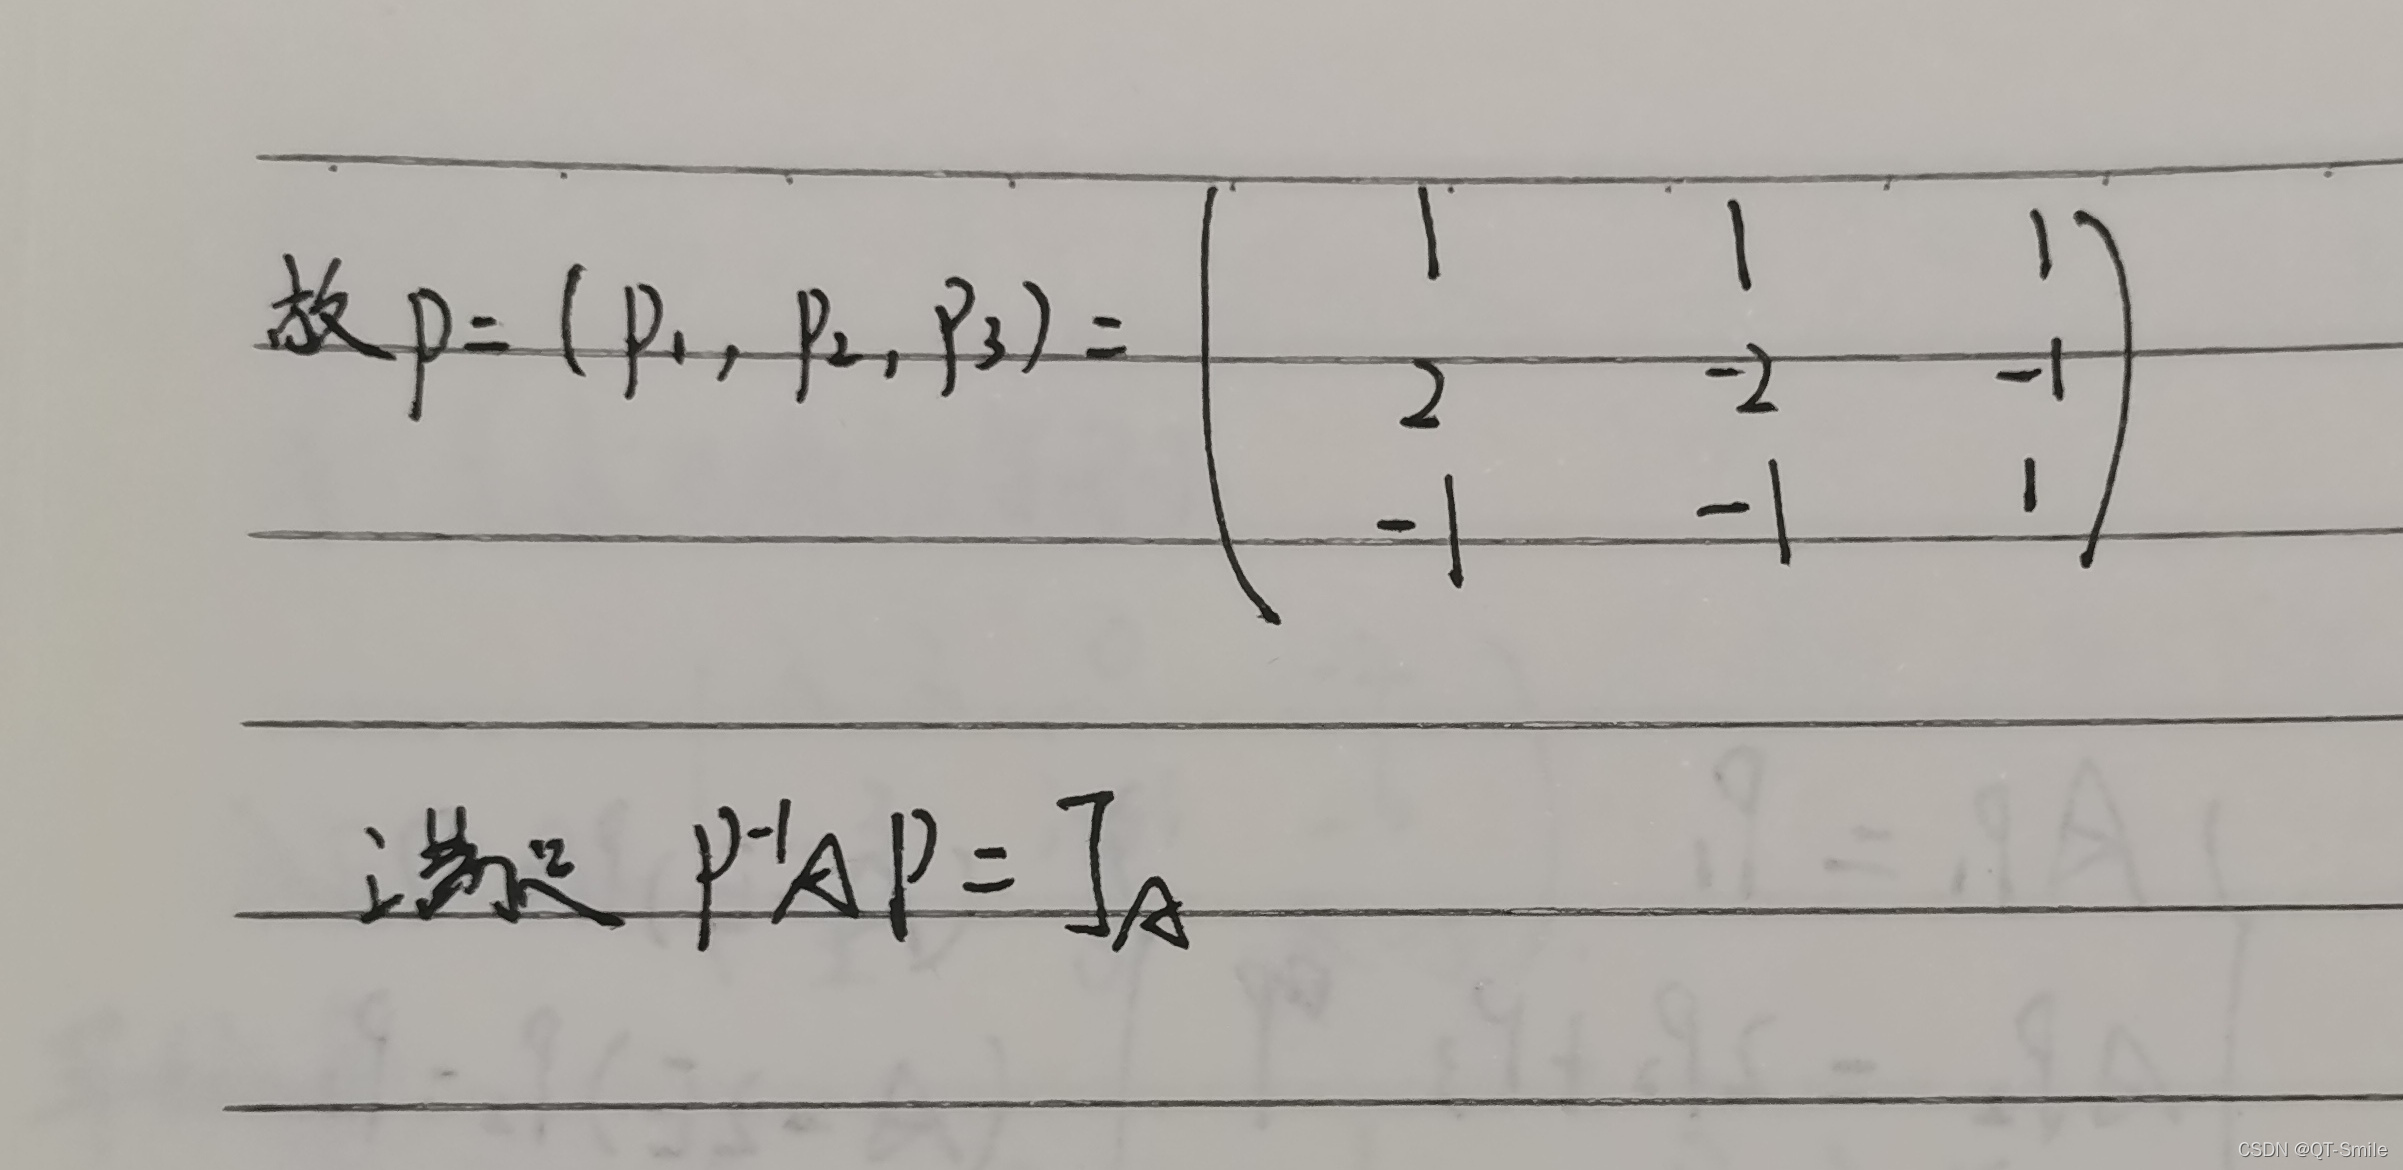 故 P = (P₁, P₂, P₃) = ( 1 1 1
2 -2 -1
-1 -1 1 )
满足 P⁻¹AP = J_A
CSDN @QT-Smile